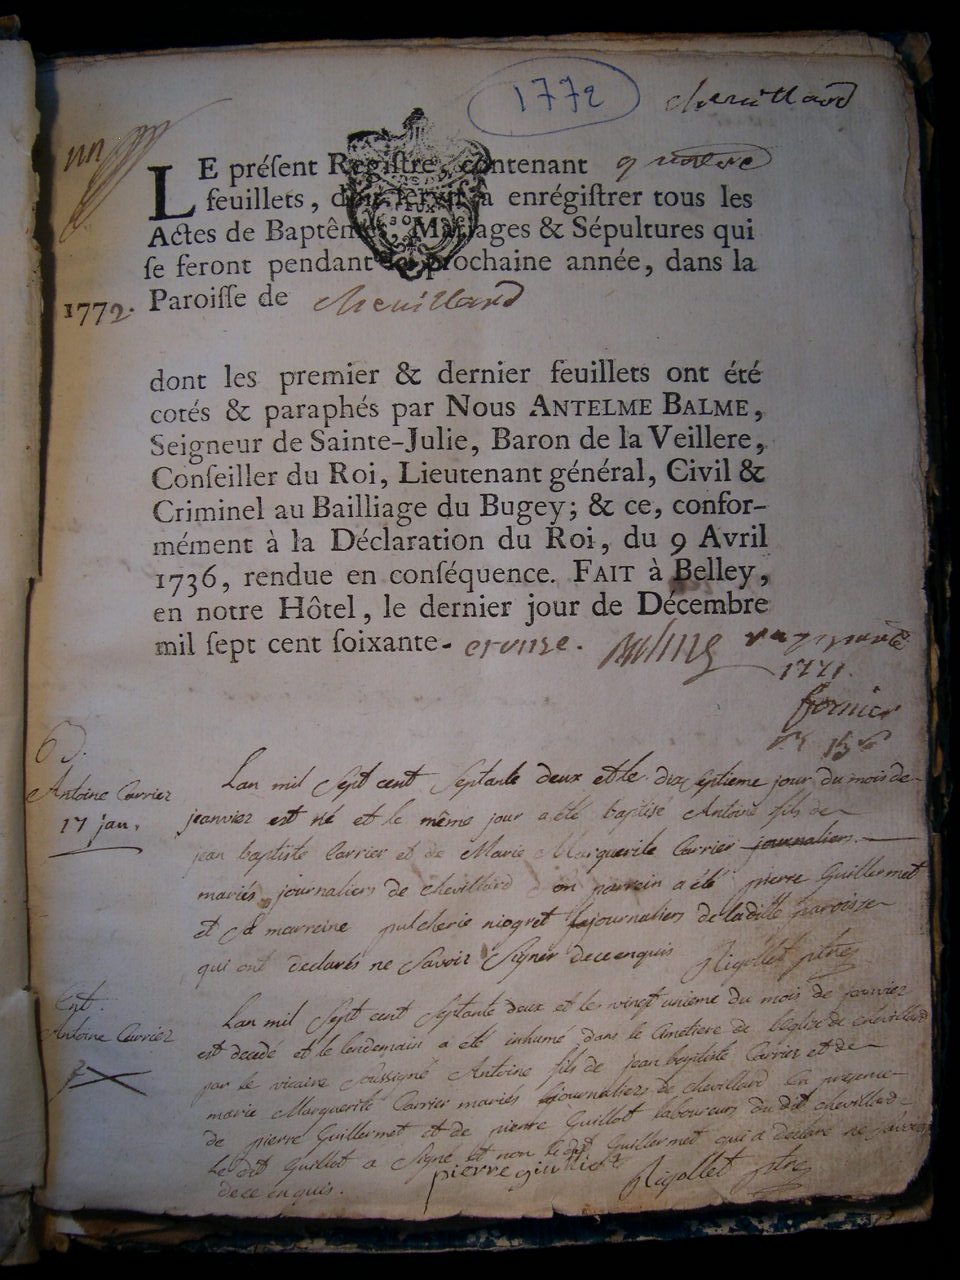 1772
chevillard
un
LE préſent Regiſtre, contenant quatre
feuillets, dont ſervir à enrégiſtrer tous les
Actes de Baptêmes, Mariages & Sépultures qui
ſe feront pendant la prochaine année, dans la
1772. Paroiſſe de chevillard
dont les premier & dernier feuillets ont été
cotés & paraphés par Nous ANTELME BALME,
Seigneur de Sainte-Julie, Baron de la Veillere,
Conſeiller du Roi, Lieutenant général, Civil &
Criminel au Bailliage du Bugey; & ce, confor-
mément à la Déclaration du Roi, du 9 Avril
1736, rendue en conſéquence. FAIT à Belley,
en notre Hôtel, le dernier jour de Décembre
mil ſept cent ſoixante- et onze. Balme
1771.
fornier
15
Antoine Carrier
17 jan.
Lan mil Sept cent Septante deux et le dix septieme jour du mois de
janvier est né et le même jour a été baptisé Antoine fils de
jean baptiste Carrier et de Marie Marguerite Carrier journaliers
mariés journaliers de chevillard Son parrein a été pierre Guillermet
et Sa marreine pulcherie niogret journaliers de laditte paroisse
qui ont declarés ne Savoir Signer de ce enquis Rigollet ptre
Ent.
Antoine Carrier
Lan mil Sept cent Septante deux et le vingt unieme du mois de janvier
est decedé et le lendemain a été inhumé dans le Cimetiere de l'église de chevillard
par le vicaire Soussigné Antoine fils de jean baptiste Carrier et de
marie Marguerite Carrier mariés journaliers de chevillard En presence
de pierre Guillermet et de pierre Guillot laboureurs du dit chevillard
le dit Guillot a Signé et non le dit Guillermet qui a declaré ne Savoir
de ce enquis. pierre guillot Rigollet ptre